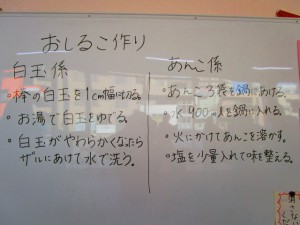 おしるこ作り
白玉係
・棒の白玉を1cm幅に切る。
・お湯で白玉をゆでる。
・白玉がやわらかくなったら
ザルにあけて水で洗う。
あんこ係
・あんころ袋を鍋にあける。
・水900mlを鍋に入れる。
・火にかけてあんこを溶かす。
・塩を少量入れて味を整える。